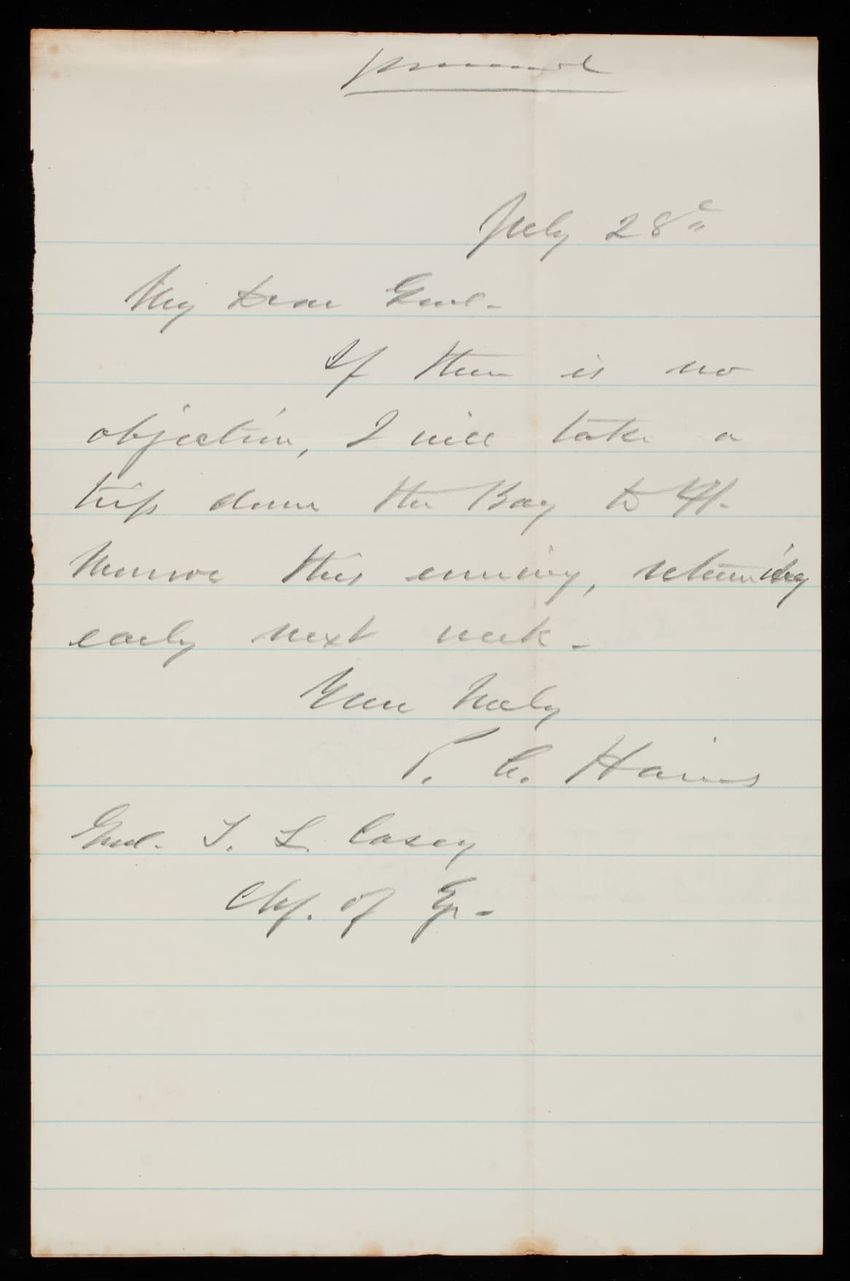 Personal
July 28"
My Dear Genl.
If there is no
objection, I will take a
trip down the Bay to Ft.
Monroe this evening, returning
early next week.
Yours truly
P. C. Hains
Genl. T. L. Casey
Chf. of Eng.